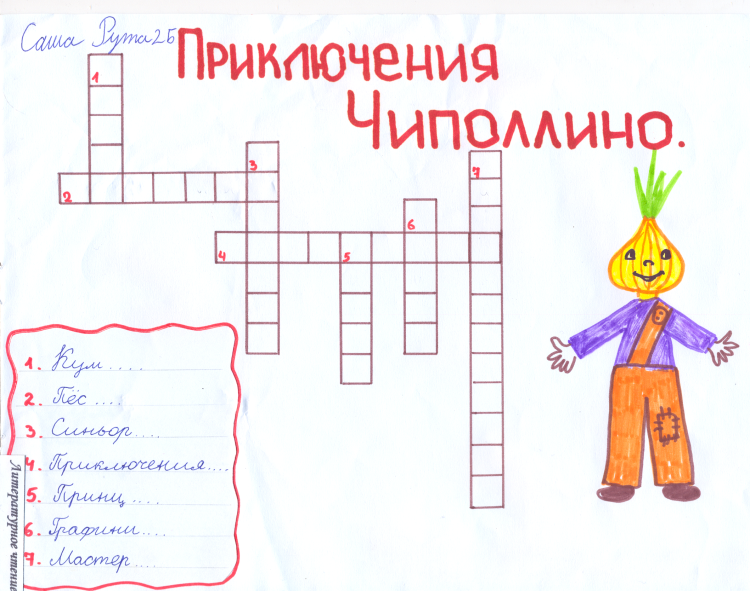 Саша Рута 2Б
Приключения
Чиполлино.
1
2
3
4
5
6
7
1. Кум ....
2. Пёс ....
3. Синьор ....
4. Приключения ....
5. Принц ....
6. Графини ....
7. Мастер ....
Литературное чтение